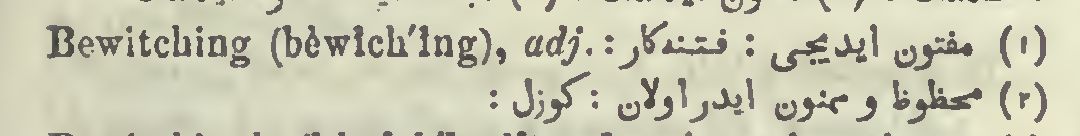 Bewitching (bèwĭch'ĭng), adj. : (١) مفتون ايديجى : فتنه‌كار :
(٢) محظوظ و ممنون ايدر اولان : كوزل :